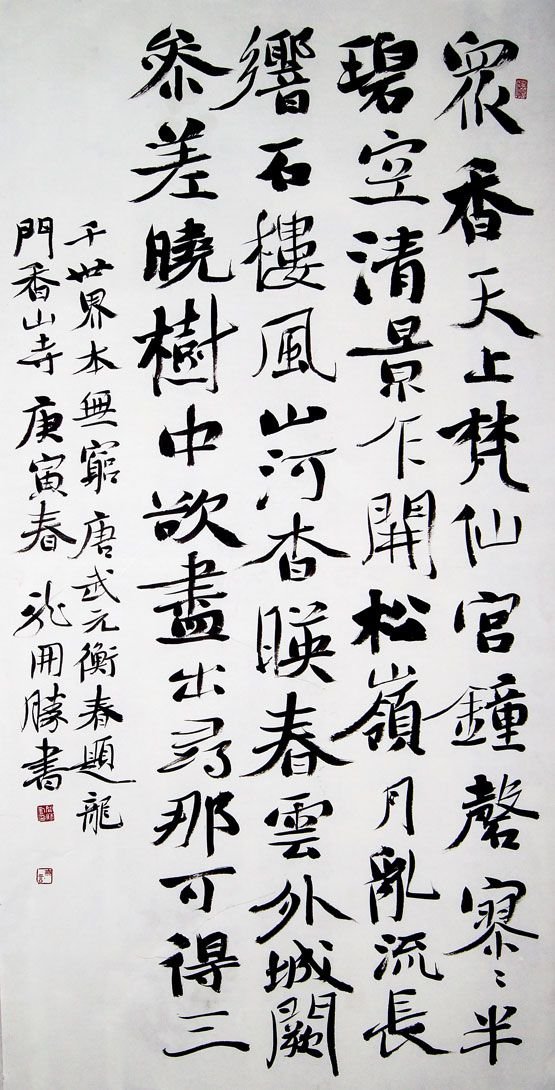 眾香天上梵仙宮鐘磬寥〻半
碧空清景乍開松嶺月亂流長
響石樓風山河杳暎春雲外城闕
叅差曉樹中欲盡出尋那可得三
千世界本無窮唐武元衡春題龍
門香山寺庚寅春龍開勝書